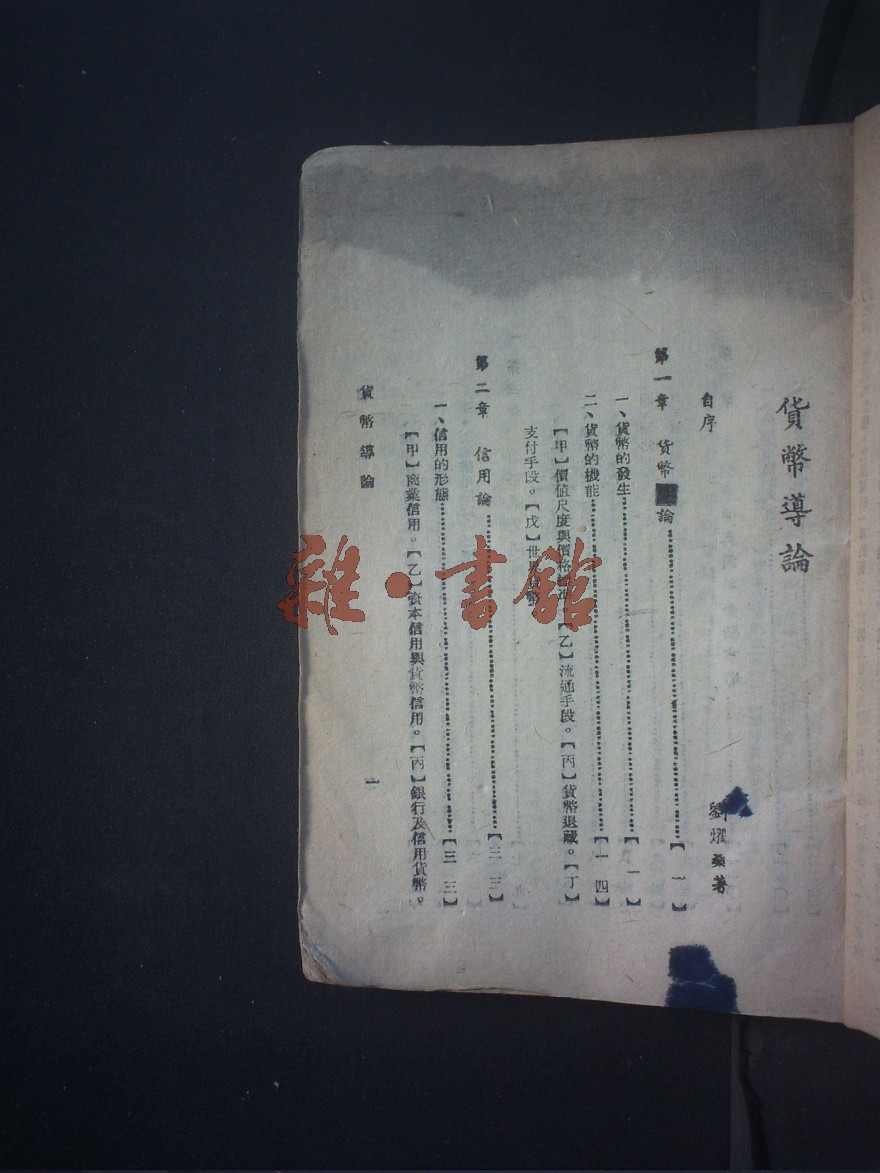 貨幣導論
劉燿燊著
自序
第一章 貨幣論……【一】
一、貨幣的發生……【一】
二、貨幣的機能……【一四】
【甲】價值尺度與價格標準。【乙】流通手段。【丙】貨幣退藏。【丁】
支付手段。【戊】世界貨幣
第二章 信用論……【三三】
一、信用的形態……【三三】
【甲】商業信用。【乙】資本信用與貨幣信用。【丙】銀行及信用貨幣。
貨幣導論
一
雜·書館